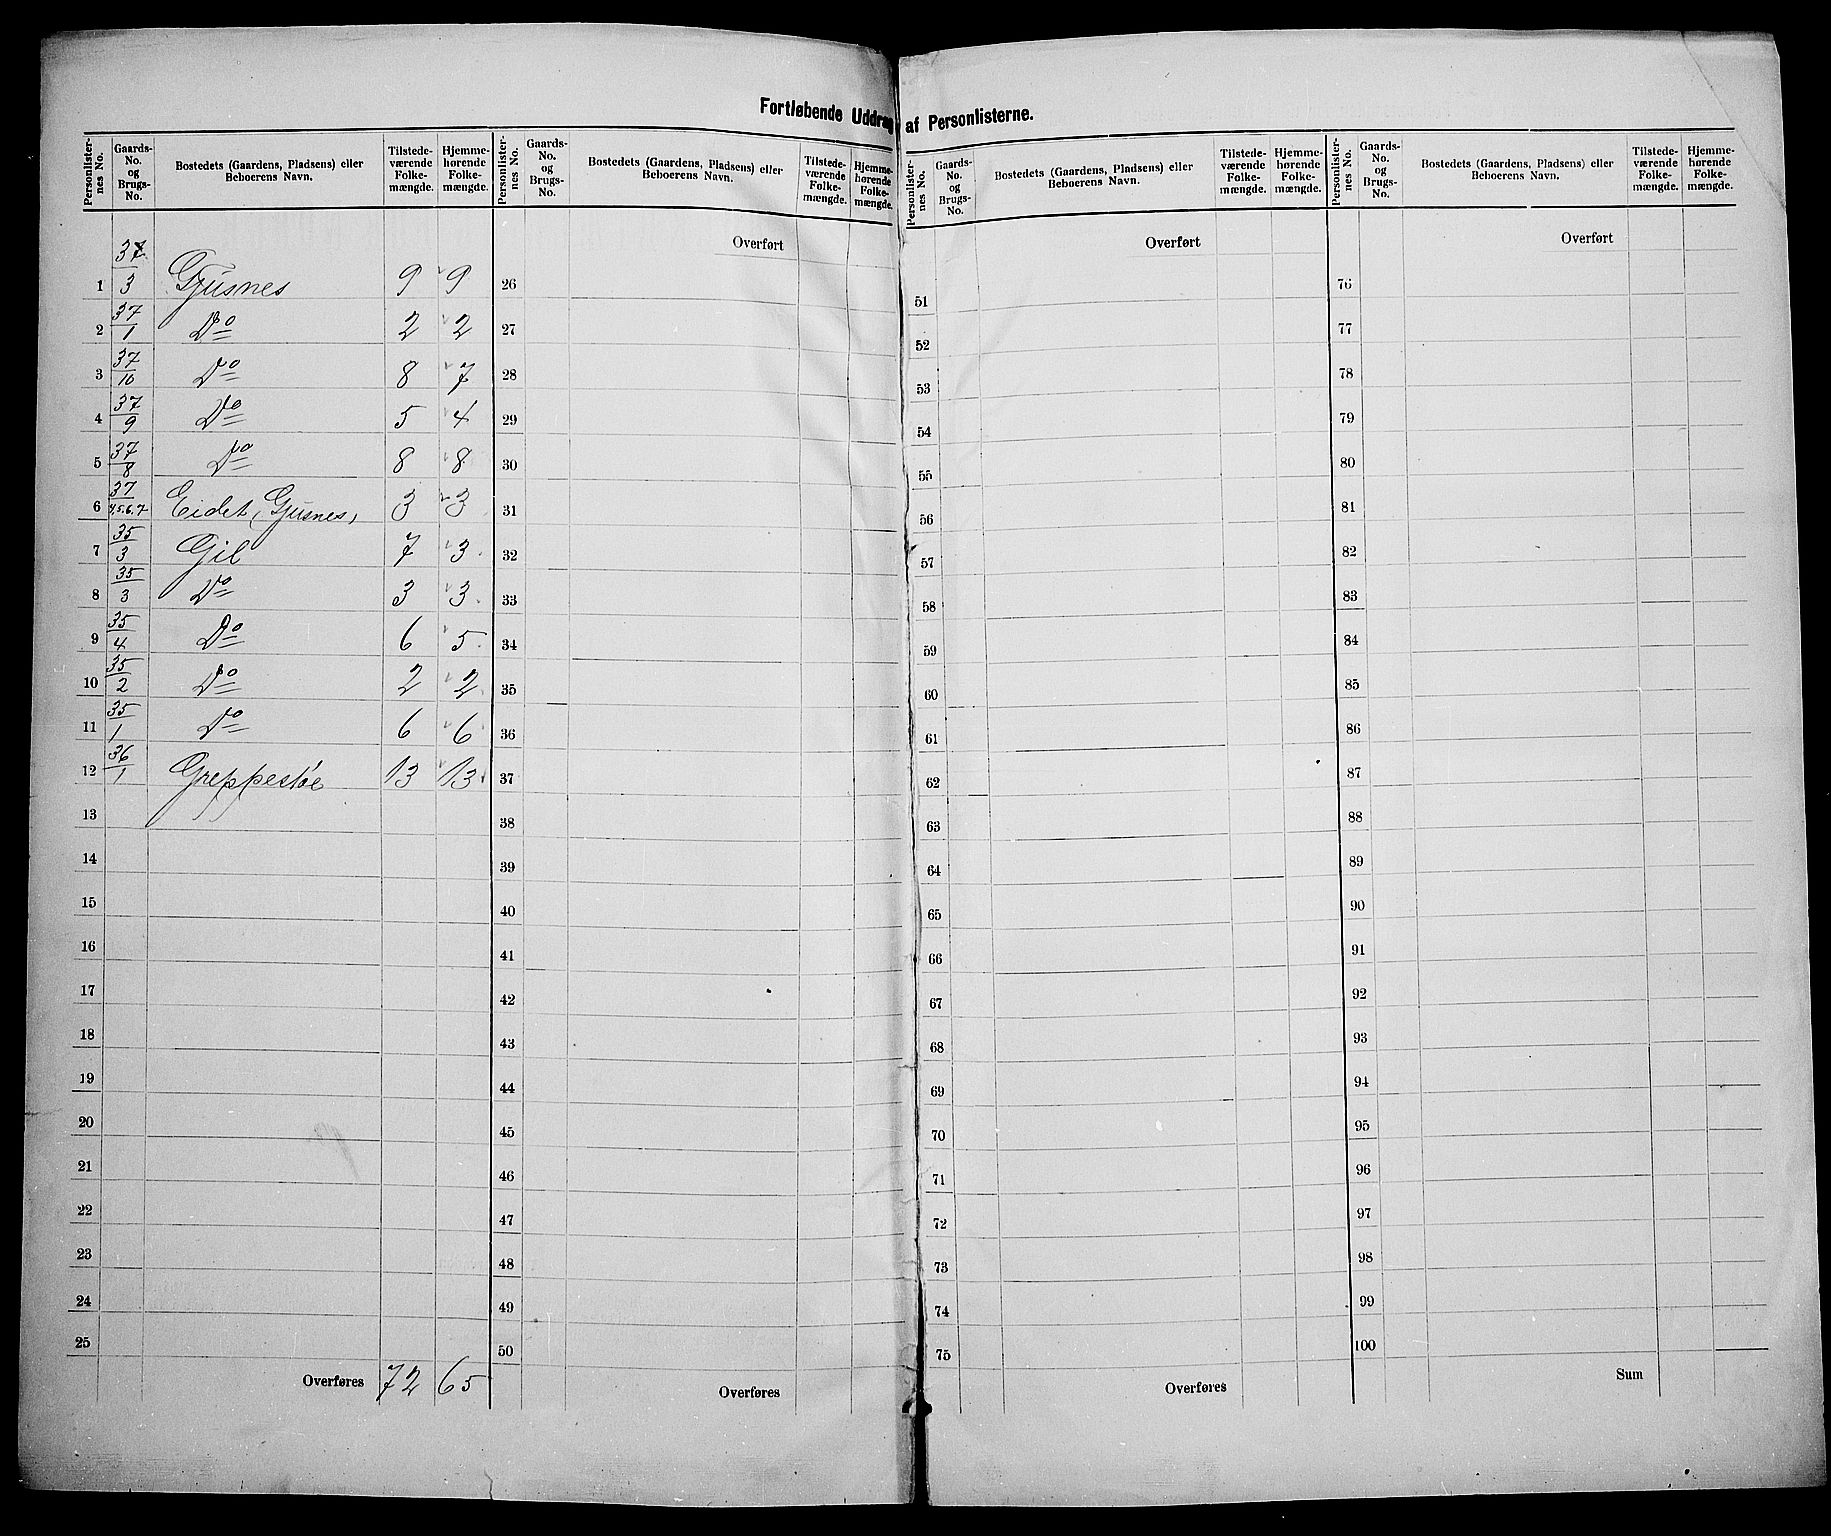 Fortløbende Uddrag af Personlisterne.
Personlister-nes No. Gaards-No. og Brugs-No. Bostedets (Gaardens, Pladsens) eller Beboerens Navn. Tilstede-værende Folke-mængde. Hjemme-hørende Folke-mængde.
1 37/3 Gjusnes 9 9
2 37/1 Do 2 2
3 37/10 Do 8 7
4 37/9 Do 5 4
5 37/8 Do 8 8
6 37/4.5.6.7 Eidet, (Gjusnes) 3 3
7 35/3 Gil 7 3
8 35/3 Do 3 3
9 35/4 Do 6 5
10 35/2 Do 2 2
11 35/1 Do 6 6
12 36/1 Greppestøe 13 13
13
14
15
16
17
18
19
20
21
22
23
24
25
Overføres 72 65
Personlister-nes No. Gaards-No. og Brugs-No. Bostedets (Gaardens, Pladsens) eller Beboerens Navn. Tilstede-værende Folke-mængde. Hjemme-hørende Folke-mængde.
Overført
26
27
28
29
30
31
32
33
34
35
36
37
38
39
40
41
42
43
44
45
46
47
48
49
50
Overføres
Personlister-nes No. Gaards-No. og Brugs-No. Bostedets (Gaardens, Pladsens) eller Beboerens Navn. Tilstede-værende Folke-mængde. Hjemme-hørende Folke-mængde.
Overført
51
52
53
54
55
56
57
58
59
60
61
62
63
64
65
66
67
68
69
70
71
72
73
74
75
Overføres
Personlister-nes No. Gaards-No. og Brugs-No. Bostedets (Gaardens, Pladsens) eller Beboerens Navn. Tilstede-værende Folke-mængde. Hjemme-hørende Folke-mængde.
Overført
76
77
78
79
80
81
82
83
84
85
86
87
88
89
90
91
92
93
94
95
96
97
98
99
100
Sum